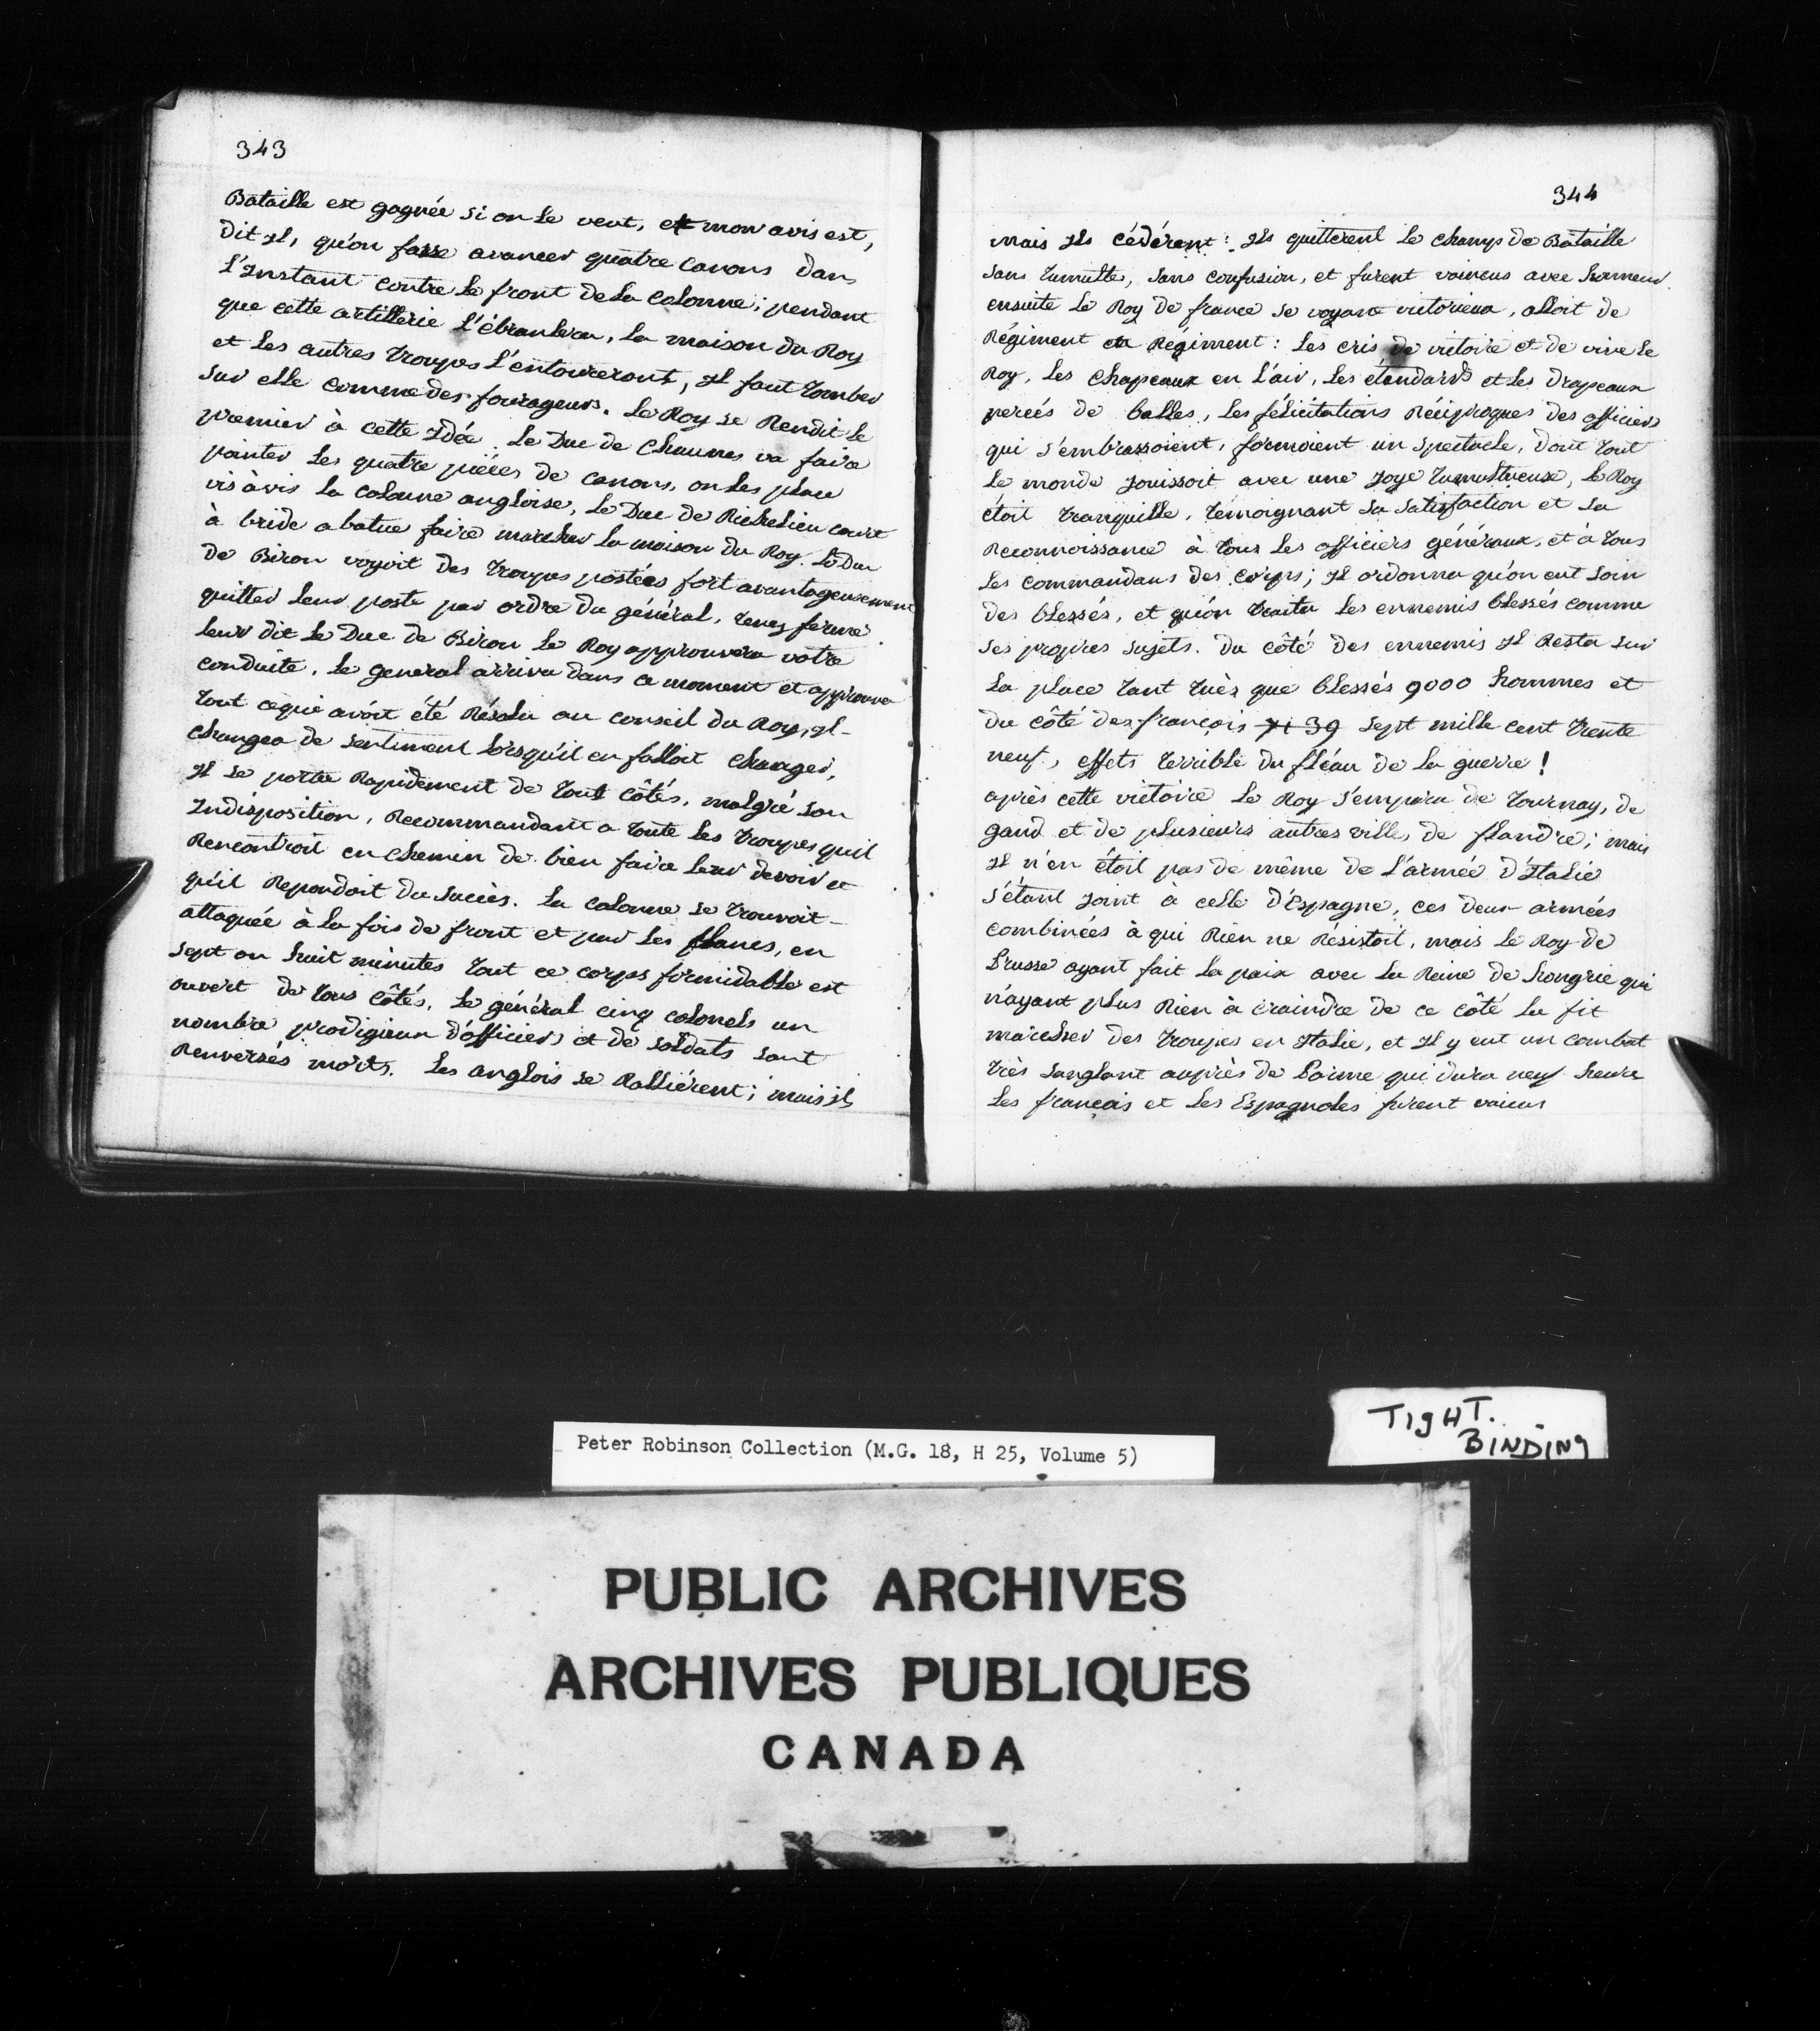 343
Bataille est gagnée si on Le veut, et mon avis est,
dit Il, qu'on fasse avancer quatre canons dans
L'Instant contre Le front de La Colonne; pendant
que cette artillerie L'ébranlera, La maison du Roy
et Les autres troupes L'entoureront, Il faut tomber
sur elle comme des fourageurs. Le Roy se Rendit Le
premier à cette Idée. Le Duc de Chaunes va faire
pointer Les quatre piéces de canons, on Les place
vis à vis La Colonne angloise, Le Duc de Richelieu court
à bride abatue faire marcher La maison du Roy. Le Duc
de Biron voyoit des troupes postées fort avantageusement
quitter Leur poste par ordre du général, tenez ferme
Leur dit Le Duc de Biron Le Roy approuvera votre
conduite. Le general arriva dans ce moment et approuva
tout ce qui avoit été Résolu au conseil du Roy, Il
changea de sentiment Lorsqu'il en falloit changer,
Il se porta Rapidement de tout côtés, malgré son
Indisposition, Recommandant a toute Les troupes qu'il
Rencontroit en chemin de bien faire Leur devoir et
qu'il Repondoit du succès. La Colonne se trouvoit
attaquée à La fois de front et par Les flancs, en
sept ou huit minutes tout ce corps formidable est
ouvert de tous côtés, Le général cinq colonels un
nombre prodigieux d'officiers et de soldats sont
Renversés morts. Les anglois se Ralliérent; mais ils
344
mais Ils cédérent: Ils quitterent Le champ de Bataille
sans tumulte, sans confusion, et furent vaincus avec honneur.
ensuite Le Roy de france se voyant victorieux, alloit de
Régiment en Régiment: Les cris de victoire et de vive Le
Roy, Les chapeaux en L'air, Les étendards et Les Drapeaux
percés de balles, Les félicitations Réciproques des officiers
qui s'embrassoient, formoient un spectacle, dont tout
Le monde Jouissoit avec une Joye tumultueuse, Le Roy
étoit tranquille, témoignant sa satisfaction et sa
Reconnoissance à tous Les officiers généraux, et à tous
Les commandans des corps; Il ordonna qu'on eut soin
des blessés, et qu'on traita Les ennemis blessés comme
ses propres sujets. Du côté des ennemis Il Resta sur
La place tant tués que blessés 9000 hommes et
du côté des françois 7139 sept mille cent trente
neuf, effets terrible du fléau de La guerre!
après cette victoire Le Roy s'empara de Tournay, de
gand et de plusieurs autres villes de flandre; mais
Il n'en étoit pas de même de L'armée d'Italie
s'étant Joint à celle d'Espagne, ces deux armées
combinées à qui Rien ne Résistoit, mais Le Roy de
Prusse ayant fait La paix avec La Reine de hongrie qui
n'ayant plus Rien à craindre de ce côté La fit
marcher des troupes en Italie, et Il y eut un combat
très sanglant auprès de Parme qui dura neuf heure
Les français et Les Espagnoles furent vaicus
TIGHT.
BINDING
Peter Robinson Collection (M.G. 18, H 25, Volume 5)
PUBLIC ARCHIVES
ARCHIVES PUBLIQUES
CANADA